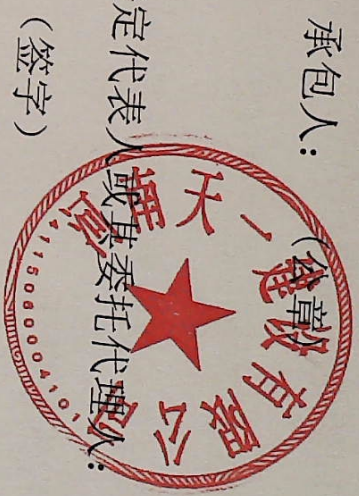 承包人:
(公章)
定代表人或其委托代理人:
(签字)
天一建设有限公司
4115080004101